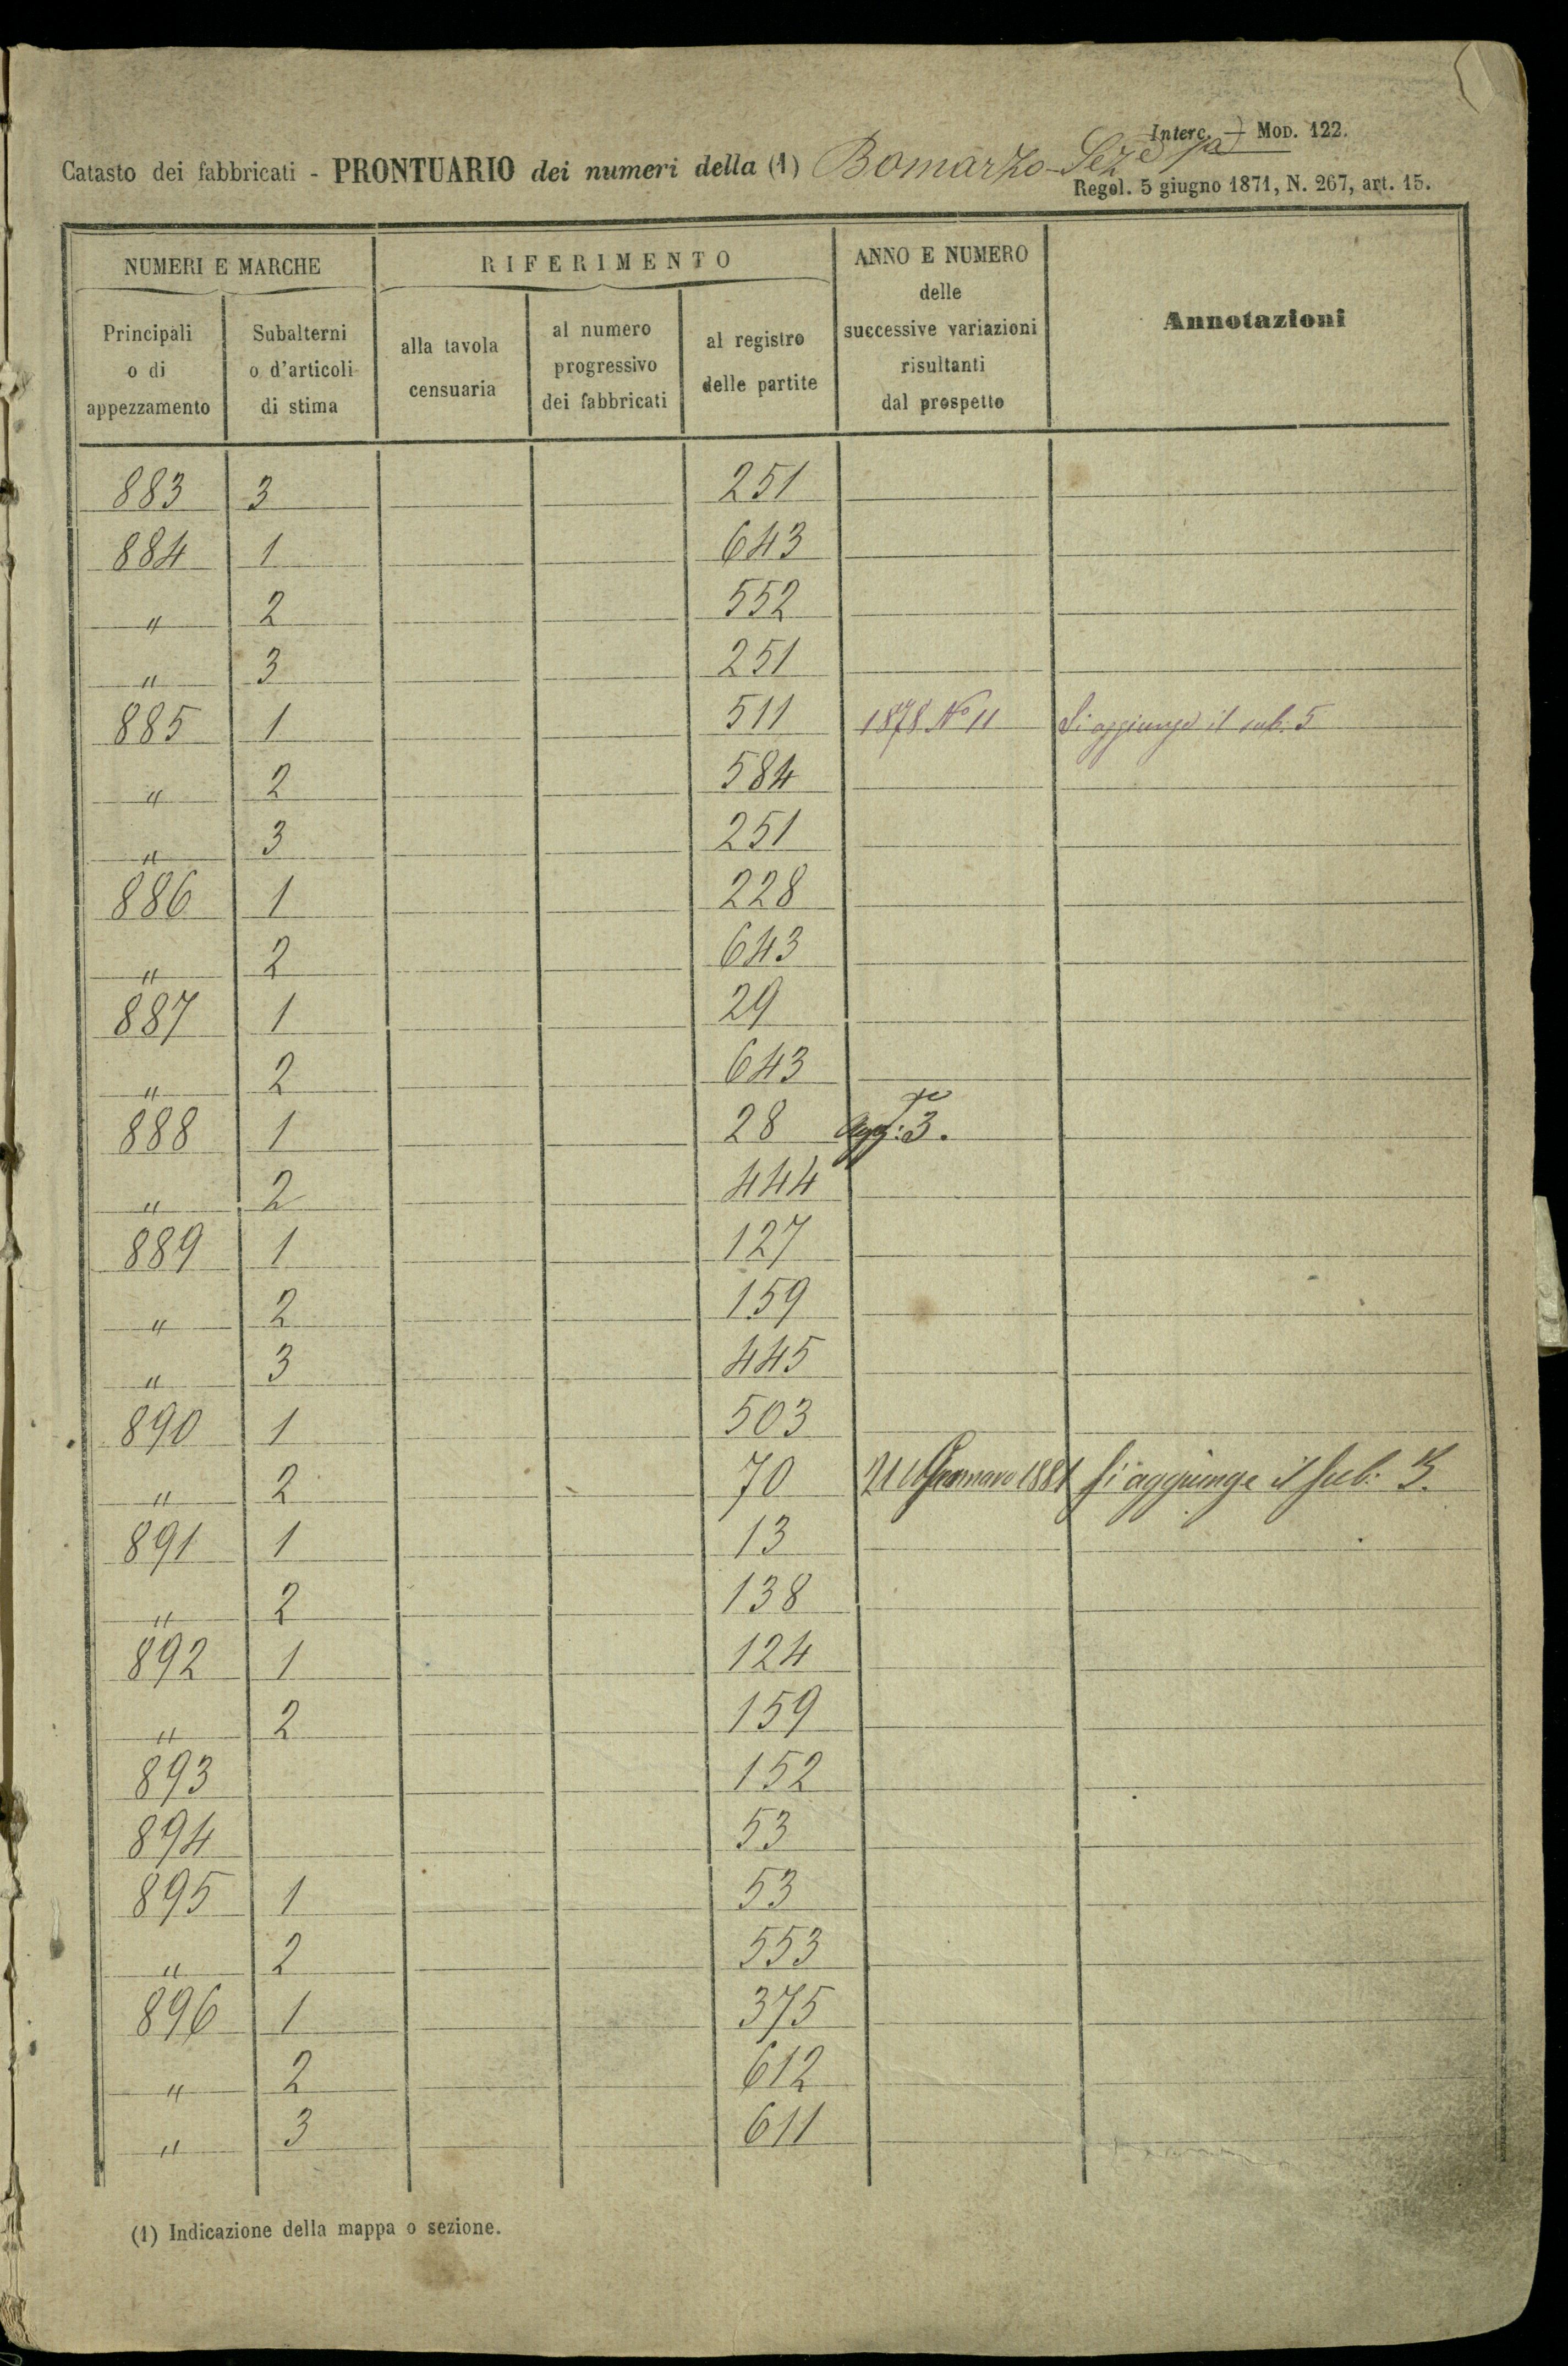 Interc. Mod. 122.
Catasto dei fabbricati - PRONTUARIO dei numeri della (1) Bomarzo - Sez.e 1a
Regol. 5 giugno 1871, N. 267, art. 15.
NUMERI E MARCHE RIFERIMENTO ANNO E NUMERO delle successive variazioni risultanti dal prospetto Annotazioni
Principali o di appezzamento Subalterni o d'articoli di stima alla tavola censuaria al numero progressivo dei fabbricati al registro delle partite
883 3 251
884 1 643
" 2 552
" 3 251
885 1 511 1878 No 11 Si aggiunge il sub. 5
" 2 584
" 3 251
886 1 228
" 2 643
887 1 29
" 2 643
888 1 28 agg: 3.
" 2 444
889 1 127
" 2 159
" 3 445
890 1 503
" 2 70 21 Gennaro 1881 Si aggiunge il sub: 3.
891 1 13
" 2 138
892 1 124
" 2 159
893 152
894 53
895 1 53
" 2 553
896 1 375
" 2 612
" 3 611
(1) Indicazione della mappa o sezione.